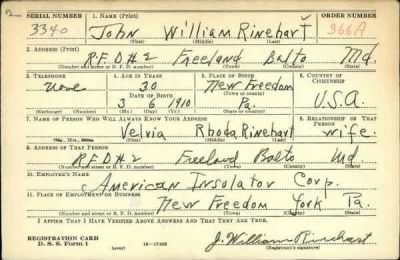 2
SERIAL NUMBER 1. NAME (Print) ORDER NUMBER
3340 John William Rinehart 366A
(First) (Middle) (Last)
2. ADDRESS (Print)
R.F.D#2 Freeland Balto Md.
(Number and street or R. F. D. number) (Town) (County) (State)
3. TELEPHONE 4. AGE IN YEARS 5. PLACE OF BIRTH 6. COUNTRY OF CITIZENSHIP
None 30 New Freedom
DATE OF BIRTH (Town or county)
3 6 1910 Pa. U.S.A.
(Exchange) (Number) (Mo.) (Day) (Yr.) (State or country)
7. NAME OF PERSON WHO WILL ALWAYS KNOW YOUR ADDRESS 8. RELATIONSHIP OF THAT PERSON
Velvia Rhoda Rinehart wife.
(Mr., Mrs., Miss) (First) (Middle) (Last)
9. ADDRESS OF THAT PERSON
R.F.D#2 Freeland Balto Md.
(Number and street or R. F. D. number) (Town) (County) (State)
10. EMPLOYER'S NAME
American Insolator Corp.
11. PLACE OF EMPLOYMENT OR BUSINESS
New Freedom York Pa.
(Number and street or R. F. D. number) (Town) (County) (State)
I AFFIRM THAT I HAVE VERIFIED ABOVE ANSWERS AND THAT THEY ARE TRUE.
REGISTRATION CARD
D. S. S. Form 1 (over) 16—17105 J. William Rinehart
(Registrant's signature)